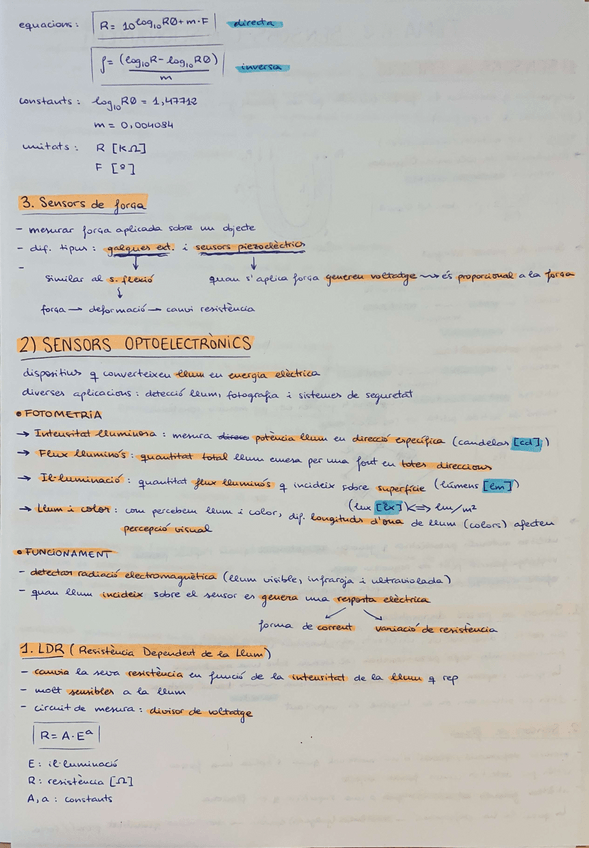 equacions: R = 10^log₁₀RØ+m·F directa
f = (log₁₀R - log₁₀RØ) / m inversa
constants: log₁₀RØ = 1,47712
m = 0,004084
unitats: R [KΩ]
F [º]
3. Sensors de força
- mesurar força aplicada sobre un objecte
- dif. tipus: galgues ext. i sensors piezoelèctrics
-
similar al s. flexió quan s'aplica força genereu voltatge → és proporcional a la força
força → deformació → canvi resistència
2) SENSORS OPTOELECTRÒNICS
dispositius q converteixeu llum eu energia elèctrica
diverses aplicacions: detecció llum, fotografia i sistemes de seguretat
• FOTOMETRIA
→ Intensitat lluminosa: mesura potència llum eu direcció específica (candelas [cd])
→ Flux lluminós: quantitat total llum emesa per una font eu totes direccions
→ Il·luminació: quantitat flux lluminós q incideix sobre superfície (lúmens [lm])
(lux [lx] ⟺ lm/m²
→ Llum i color: com percebem llum i color, dif. longituds d'ona de llum (colors) afecten
percepció visual
• FUNCIONAMENT
- detectar radiació electromagnètica (llum visible, infraroja i ultraviolada)
- quan llum incideix sobre el sensor es genera una resposta elèctrica
forma de corrent variació de resistència
1. LDR (Resistència Dependent de la Llum)
- canvia la seva resistència eu funció de la intensitat de la llum q rep
- molt sensibles a la llum
- circuit de mesura: divisor de voltatge
R = A·Eᵃ
E: il·luminació
R: resistència [Ω]
A, a: constants